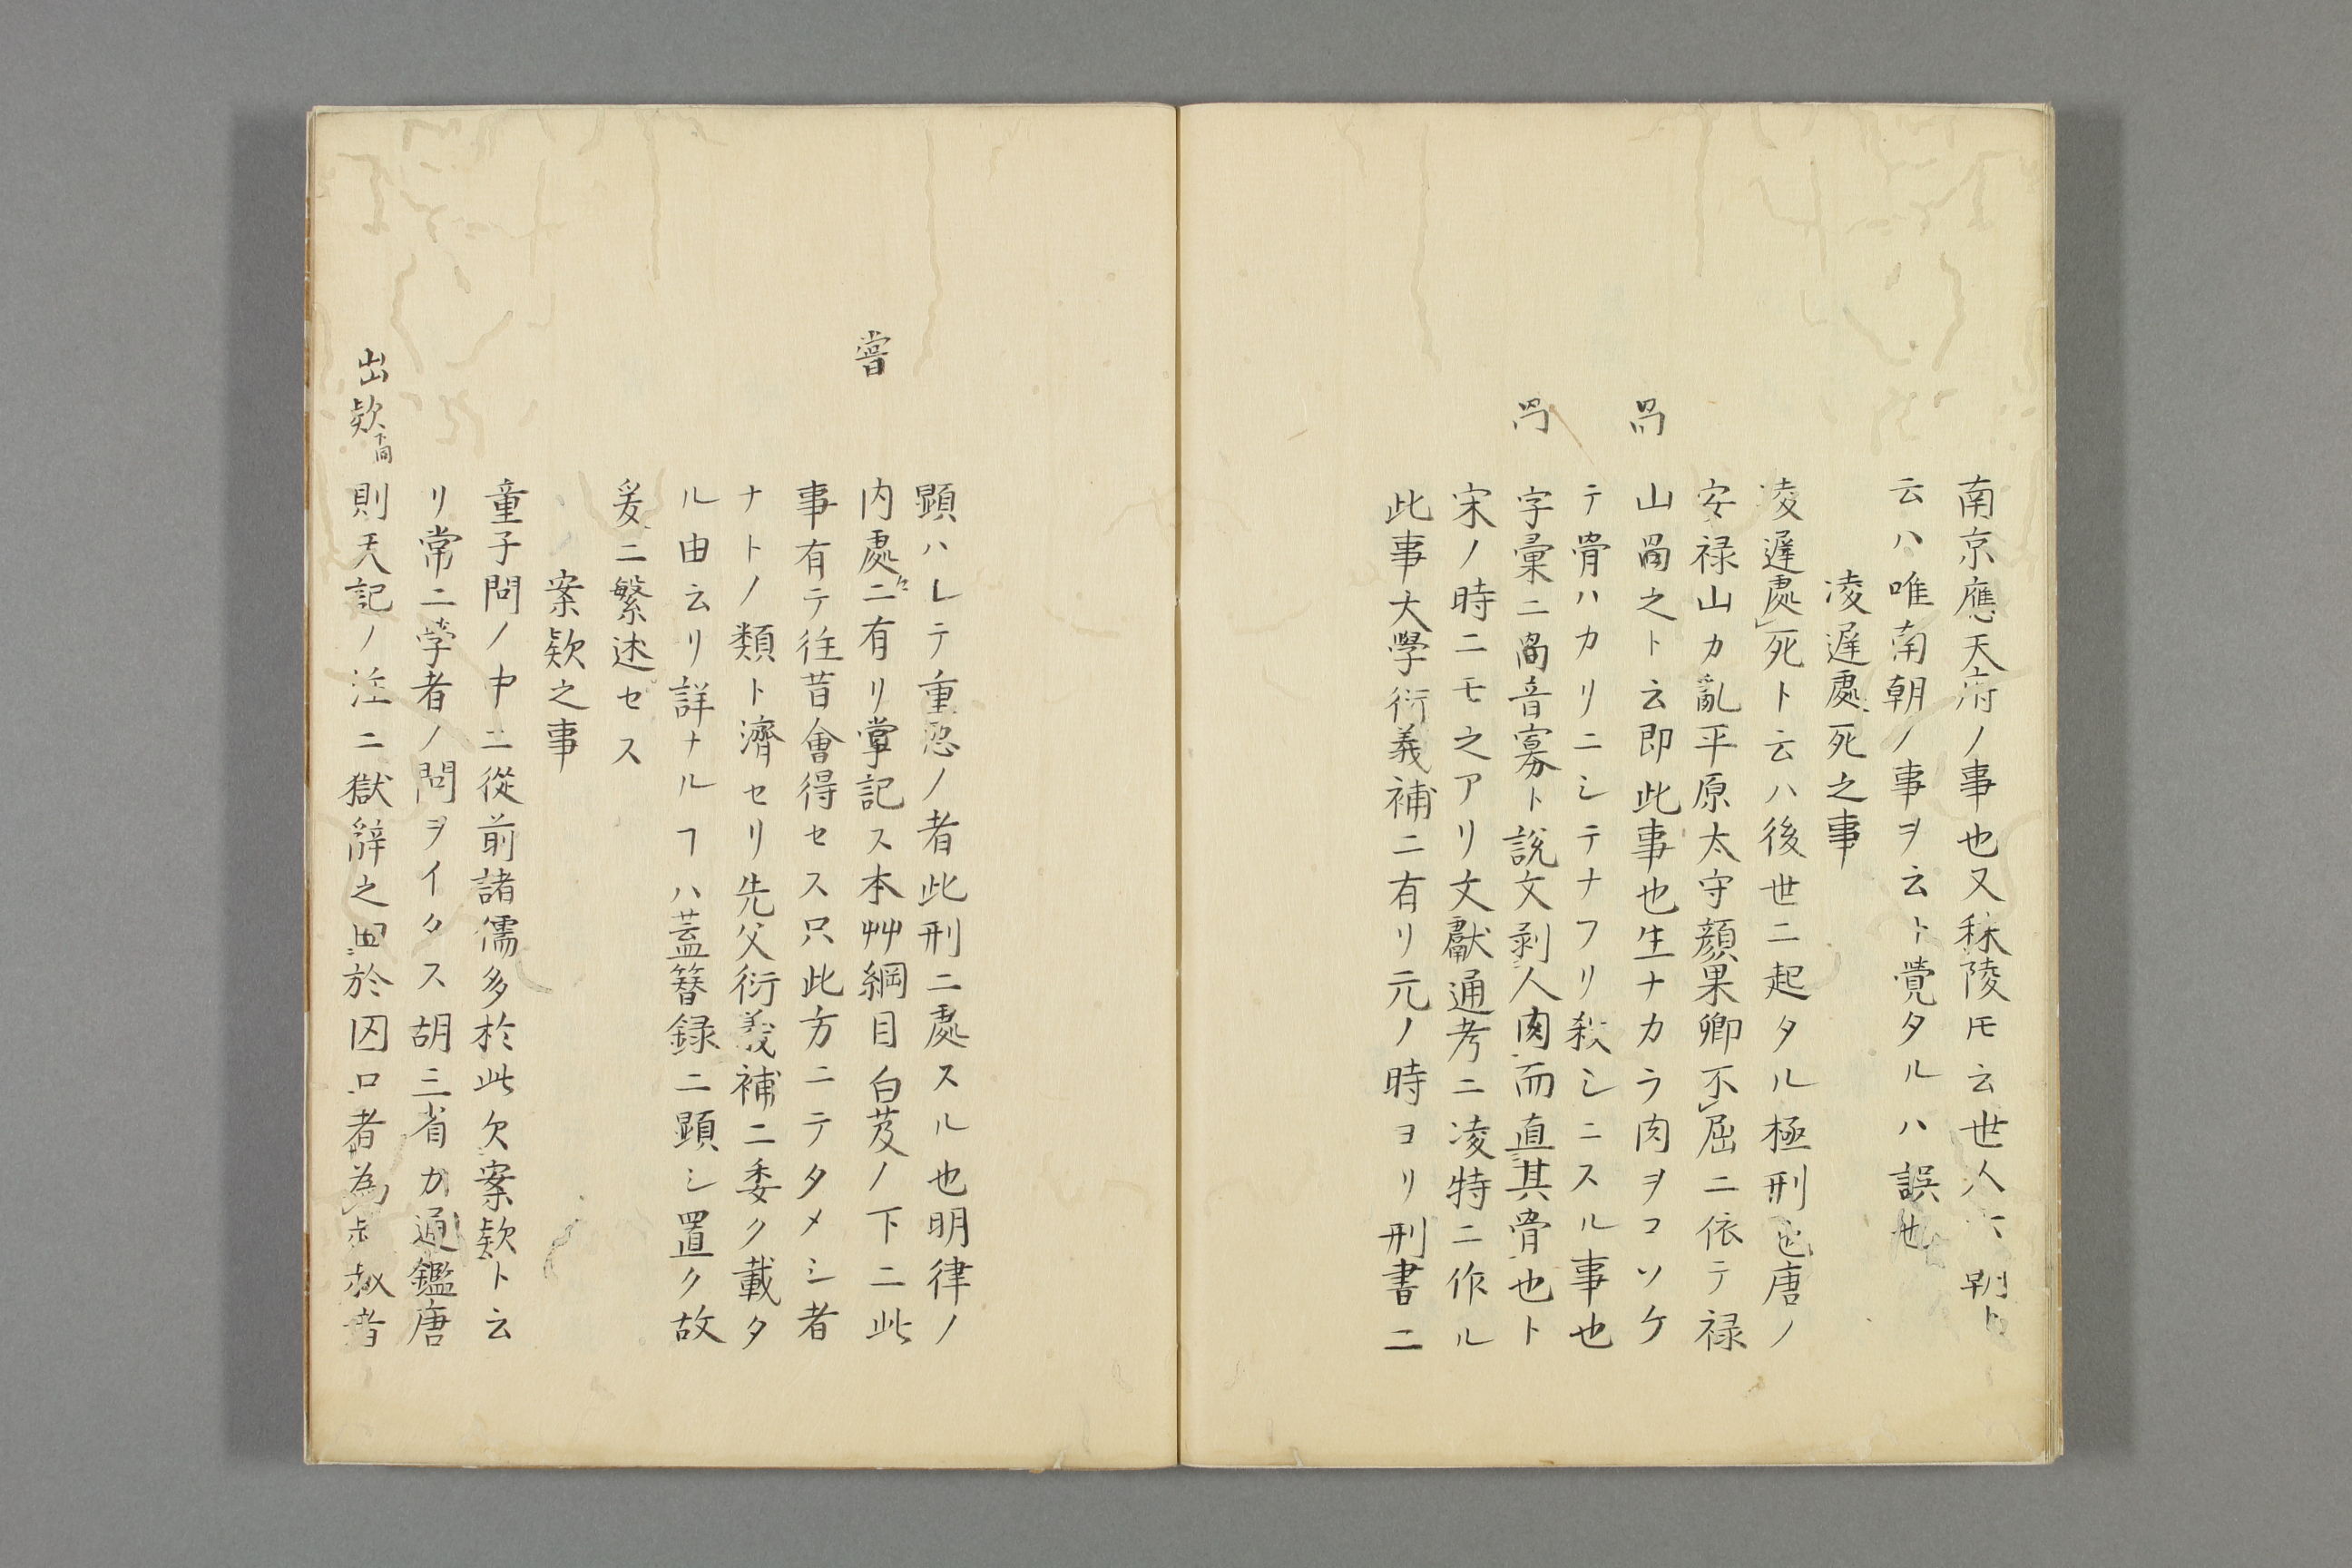 南京應天府ノ事也又秣陵氏云世人六朝ト
云ハ唯南朝ノ事ヲ云ト覚タルハ誤也
凌遅處死之事
凌遅處死ト云ハ後世ニ起タル極刑也唐ノ
安禄山カ亂平原太守顔果卿不屈ニ依テ禄
山咼之ト云即此事也生ナカラ肉ヲコソケ
テ骨ハカリニシテナフリ殺シニスル事也
字彙ニ咼音寡ト説文剥人肉而直其骨也ト
宋ノ時ニモ之アリ文獻通考ニ凌特ニ作ル
此事大學衍義補ニ有リ元ノ時ヨリ刑書ニ
顕ハレテ重惡ノ者此刑ニ處スル也明律ノ
嘗
内處々ニ有リ掌記ス本艸綱目白芨ノ下ニ此
事有テ往昔會得セス只此方ニテタメシ者
ナトノ類ト濟セリ先父衍義補ニ委ク載タ
ル由云リ詳ナルヿハ蓋簪録ニ顕シ置ク故
爰ニ繁述セス
案欵之事
童子問ノ中ニ從前諸儒多於此欠案欵ト云
リ常ニ学者ノ問ヲイタス胡三省カ通鑑唐
出欵下同
則天記ノ注ニ獄辞之出於囚口者為